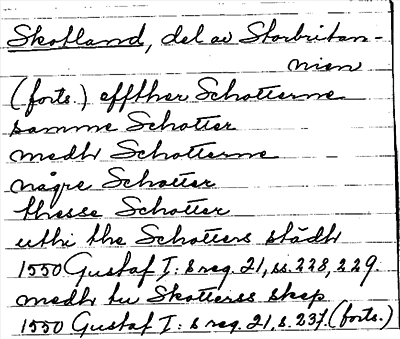 Skotland, del av Storbritan-
nien
(forts.) effther Schotterne
samme Schotter
medh Schotterne
någre Schotter
thesse Schotter
uthi the Schotters städh
1550 Gustaf I:s reg. 21, ss. 228, 229.
medh tu Skotterss skep
1550 Gustaf I:s reg. 21, s. 237. (forts.)